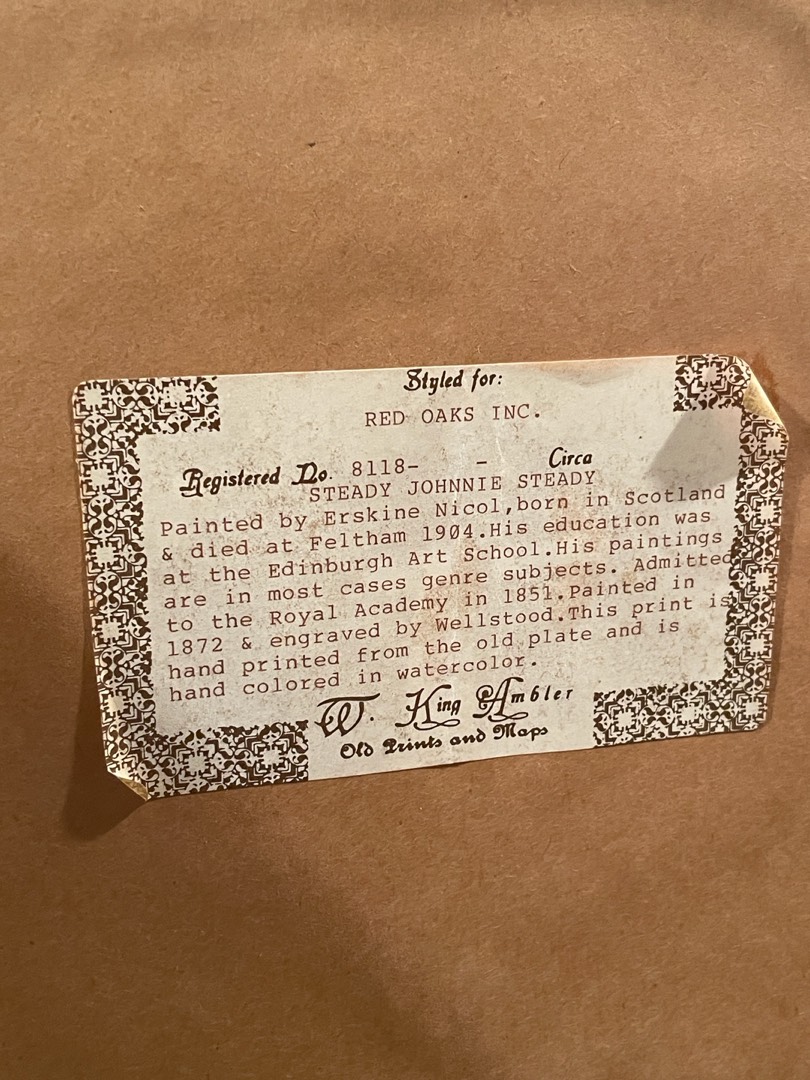 Styled for:
RED OAKS INC.
Registered No. 8118- - Circa
STEADY JOHNNIE STEADY
Painted by Erskine Nicol,born in Scotland
& died at Feltham 1904.His education was
at the Edinburgh Art School.His paintings
are in most cases genre subjects. Admitted
to the Royal Academy in 1851.Painted in
1872 & engraved by Wellstood.This print is
hand printed from the old plate and is
hand colored in watercolor.
W. King Ambler
Old Prints and Maps